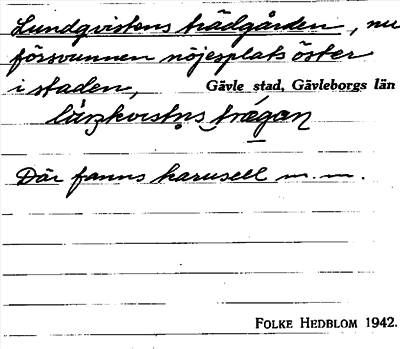 Lundqvistens trädgården, nu
försvunnen nöjesplats öster
i staden, Gävle stad, Gävleborgs län
Där fanns karusell m. m.
FOLKE HEDBLOM 1942.